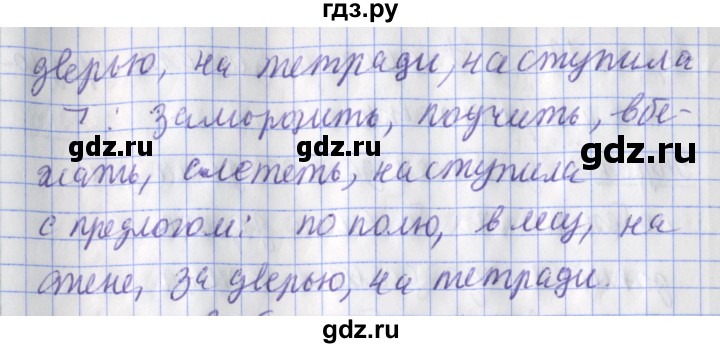 гдз.ру
дверью, на тетради, наступила
¬: заморозить, поучить, вбе-
gdz.ru gdz.ru
жать, слететь, наступила
с предлогом: по полю, в лесу, на
gdz.ru
стене, за дверью, на тетради.
gdz.ru